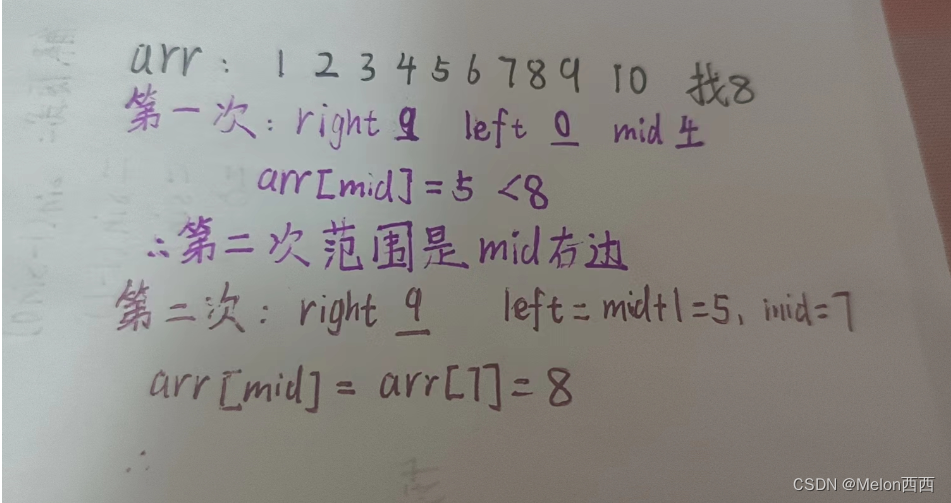 arr: 1 2 3 4 5 6 7 8 9 10 找8
第一次: right 9 left 0 mid 4
arr[mid]=5 <8
∴第二次范围是mid右边
第二次: right 9 left=mid+1=5, mid=7
arr[mid]= arr[7]=8
∴
CSDN @Melon西西